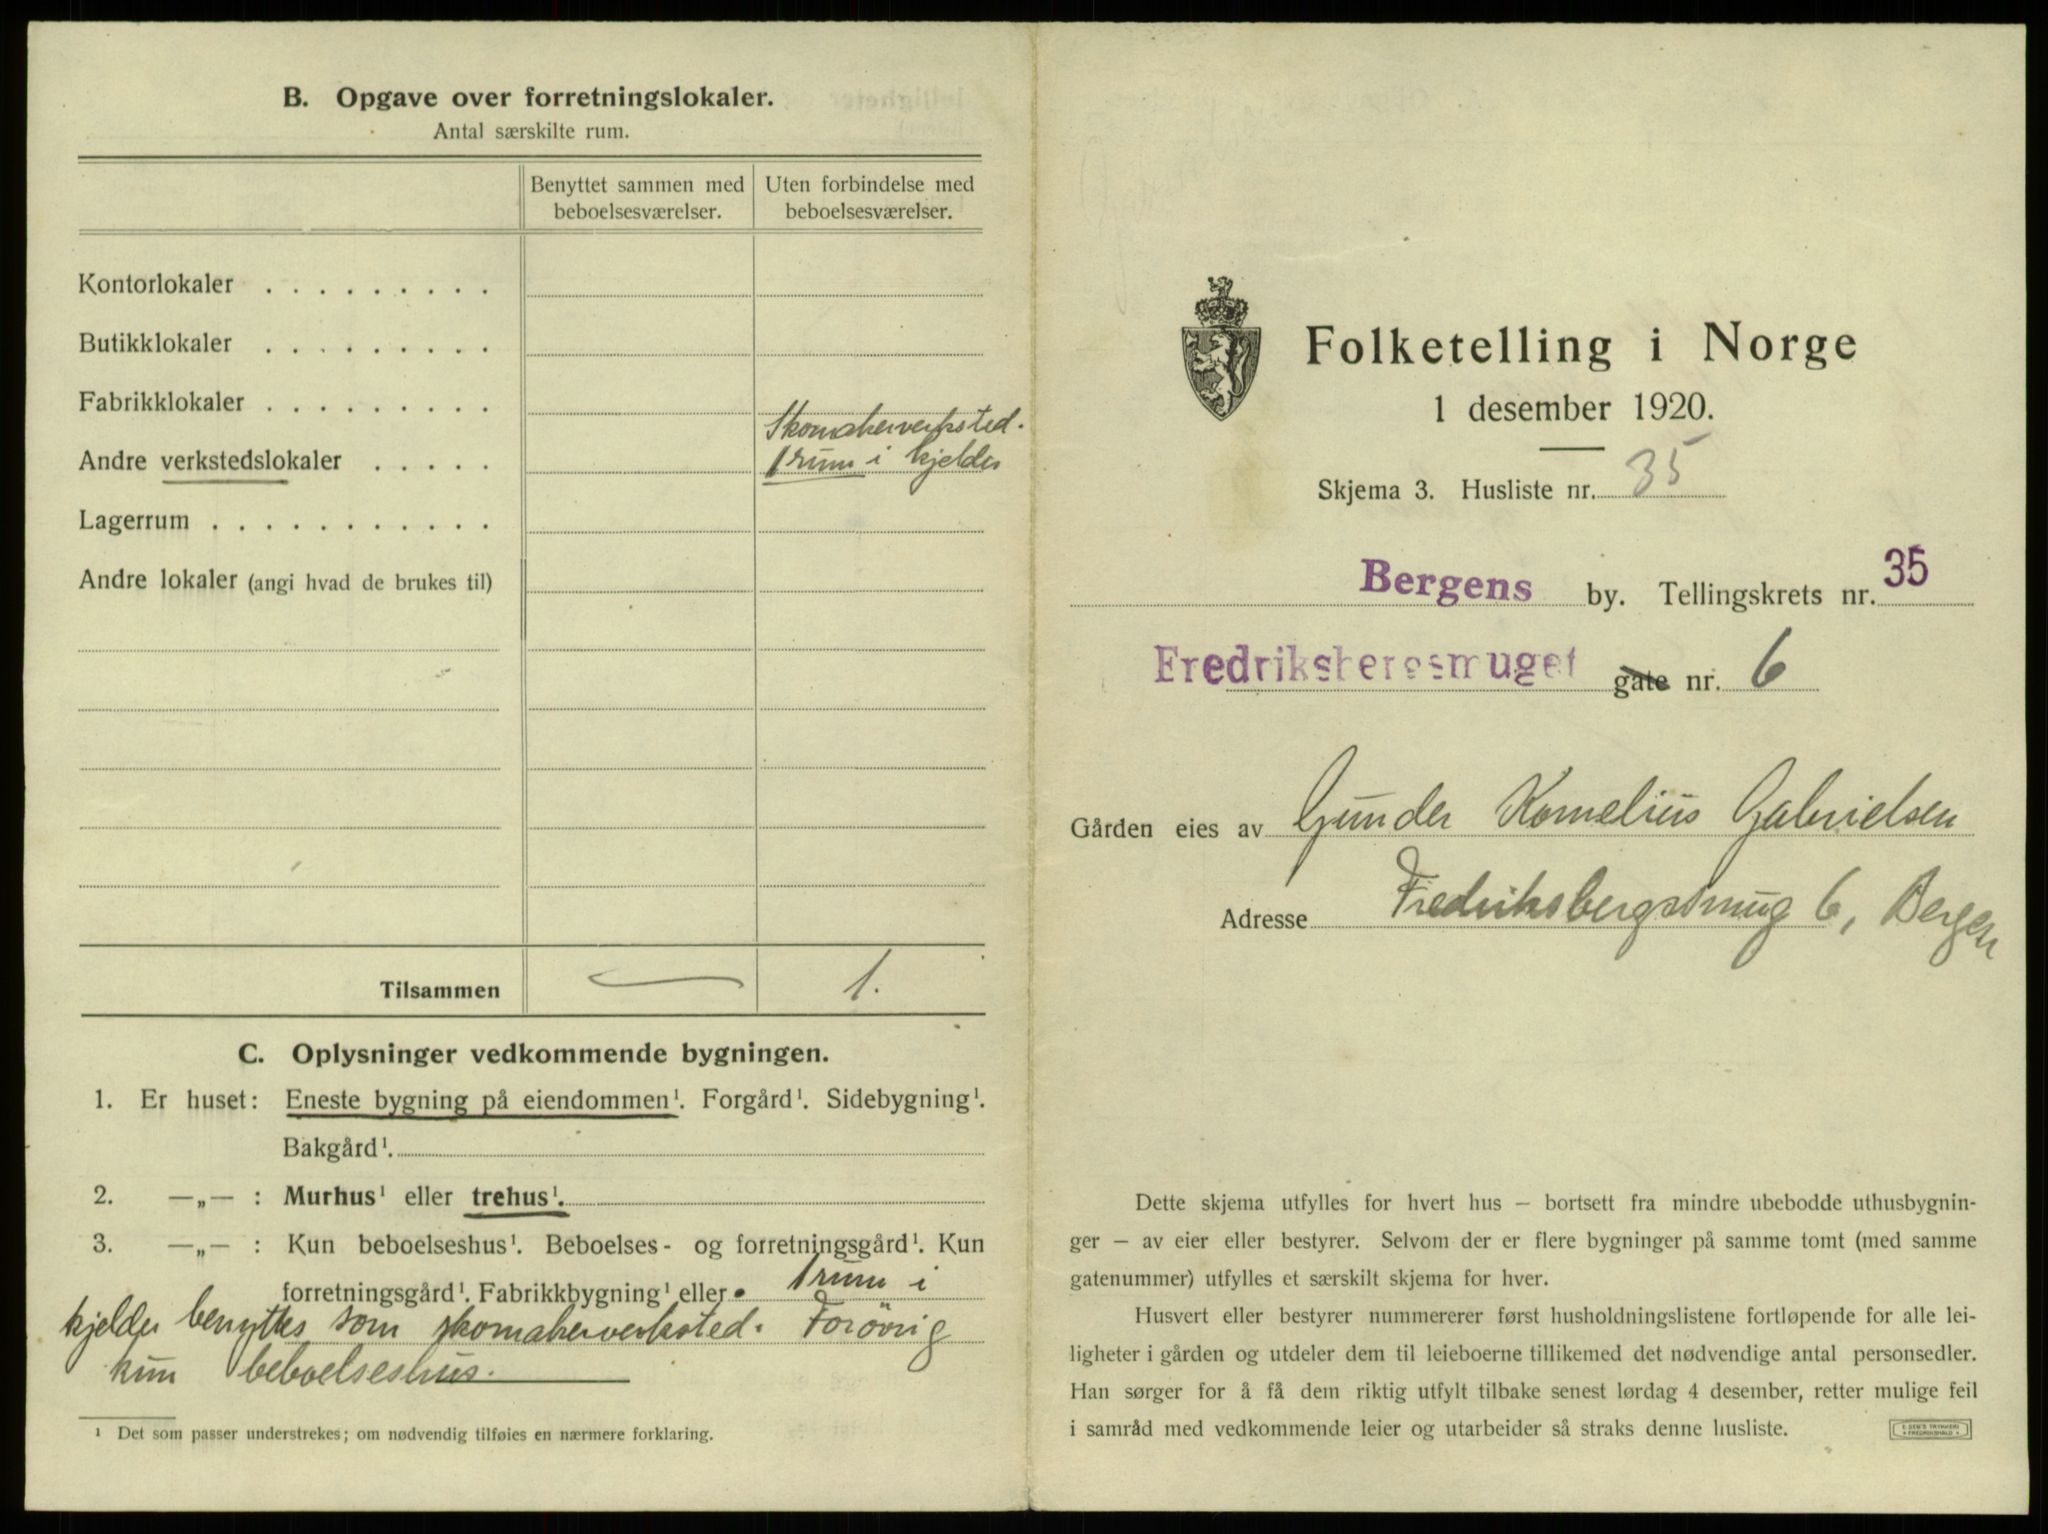 B. Opgave over forretningslokaler.
Antal særskilte rum.
Benyttet sammen med beboelsesværelser.
Uten forbindelse med beboelsesværelser.
Kontorlokaler . . . . . . . . .
Butikklokaler . . . . . . . . .
Fabrikklokaler . . . . . . . . .
Skomakerverksted.
Andre verkstedslokaler . . . . . 1 rum i kjelder
Lagerrum . . . . . . . . . . .
Andre lokaler (angi hvad de brukes til)
Tilsammen — 1.
C. Oplysninger vedkommende bygningen.
1. Er huset: Eneste bygning på eiendommen¹. Forgård¹. Sidebygning¹.
Bakgård¹.
2. —„— : Murhus¹ eller trehus¹.
3. —„— : Kun beboelseshus¹. Beboelses- og forretningsgård¹. Kun
forretningsgård¹. Fabrikkbygning¹ eller 1 rum i
kjelder benyttes som skomakerverksted. Forövrig
kun beboelseshus.
¹ Det som passer understrekes; om nødvendig tilføies en nærmere forklaring.
Folketelling i Norge
1 desember 1920.
Skjema 3. Husliste nr. 35
Bergens by. Tellingskrets nr. 35
Fredriksbergsmuget gate nr. 6
Gården eies av Gunder Kornelius Gabrielsen
Adresse Fredriksbergssmug 6, Bergen
Dette skjema utfylles for hvert hus — bortsett fra mindre ubebodde uthusbygnin-
ger — av eier eller bestyrer. Selvom der er flere bygninger på samme tomt (med samme
gatenummer) utfylles et særskilt skjema for hver.
Husvert eller bestyrer nummererer først husholdningslistene fortløpende for alle lei-
ligheter i gården og utdeler dem til leieboerne tillikemed det nødvendige antal personsedler.
Han sørger for å få dem riktig utfylt tilbake senest lørdag 4 desember, retter mulige feil
i samråd med vedkommende leier og utarbeider så straks denne husliste.